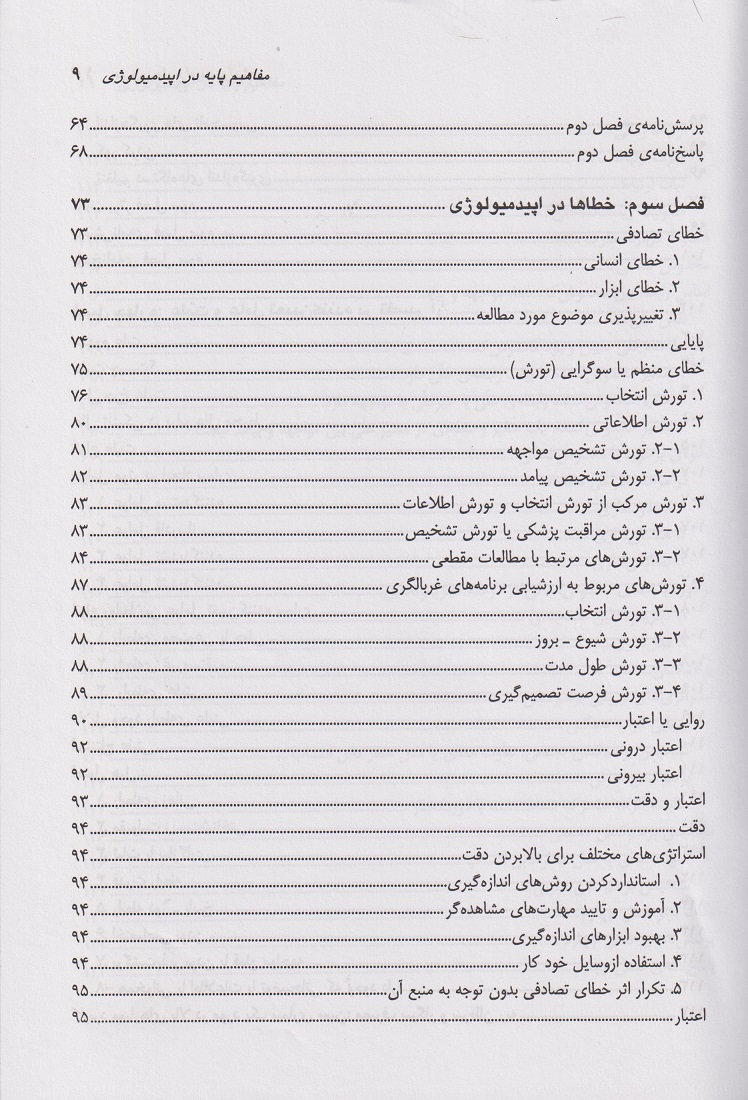 مفاهیم پایه در اپیدمیولوژی ۹
پرسش‌نامه‌ی فصل دوم ........ ۶۴
پاسخ‌نامه‌ی فصل دوم ........ ۶۸
فصل سوم: خطاها در اپیدمیولوژی ........ ۷۳
خطای تصادفی ........ ۷۳
۱. خطای انسانی ........ ۷۴
۲. خطای ابزار ........ ۷۴
۳. تغییرپذیری موضوع مورد مطالعه ........ ۷۴
پایایی ........ ۷۴
خطای منظم یا سوگرایی (تورش) ........ ۷۵
۱. تورش انتخاب ........ ۷۶
۲. تورش اطلاعاتی ........ ۸۰
۲-۱. تورش تشخیص مواجهه ........ ۸۱
۲-۲. تورش تشخیص پیامد ........ ۸۲
۳. تورش مرکب از تورش انتخاب و تورش اطلاعات ........ ۸۳
۳-۱. تورش مراقبت پزشکی یا تورش تشخیص ........ ۸۳
۳-۲. تورش‌های مرتبط با مطالعات مقطعی ........ ۸۴
۴. تورش‌های مربوط به ارزشیابی برنامه‌های غربالگری ........ ۸۷
۳-۱. تورش انتخاب ........ ۸۸
۳-۲. تورش شیوع ـ بروز ........ ۸۸
۳-۳. تورش طول مدت ........ ۸۸
۳-۴. تورش فرصت تصمیم‌گیری ........ ۸۹
روایی یا اعتبار ........ ۹۰
اعتبار درونی ........ ۹۲
اعتبار بیرونی ........ ۹۲
اعتبار و دقت ........ ۹۳
دقت ........ ۹۴
استراتژی‌های مختلف برای بالابردن دقت ........ ۹۴
۱. استانداردکردن روش‌های اندازه‌گیری ........ ۹۴
۲. آموزش و تایید مهارت‌های مشاهده‌گر ........ ۹۴
۳. بهبود ابزارهای اندازه‌گیری ........ ۹۴
۴. استفاده ازوسایل خود کار ........ ۹۴
۵. تکرار اثر خطای تصادفی بدون توجه به منبع آن ........ ۹۵
اعتبار ........ ۹۵